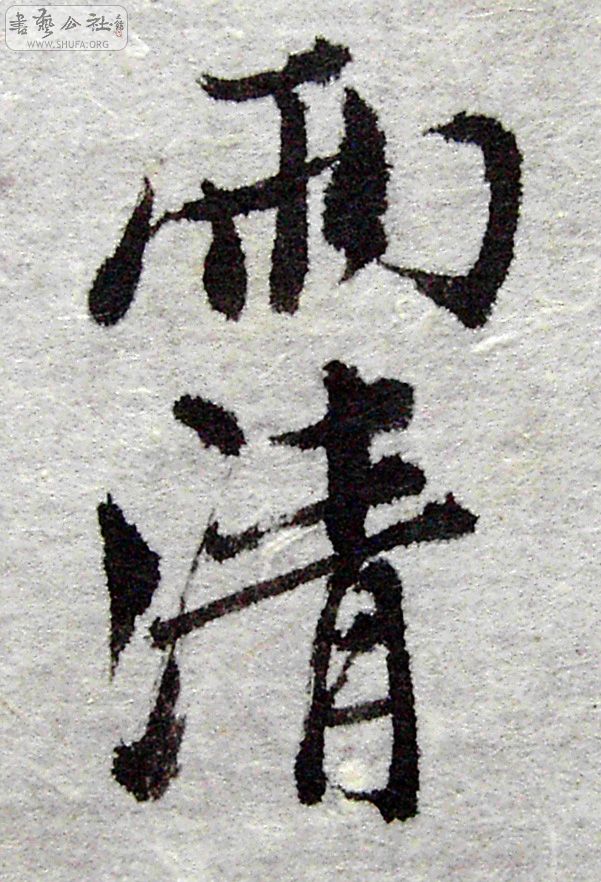 書藝公社
WWW.SHUFA.ORG
雨清